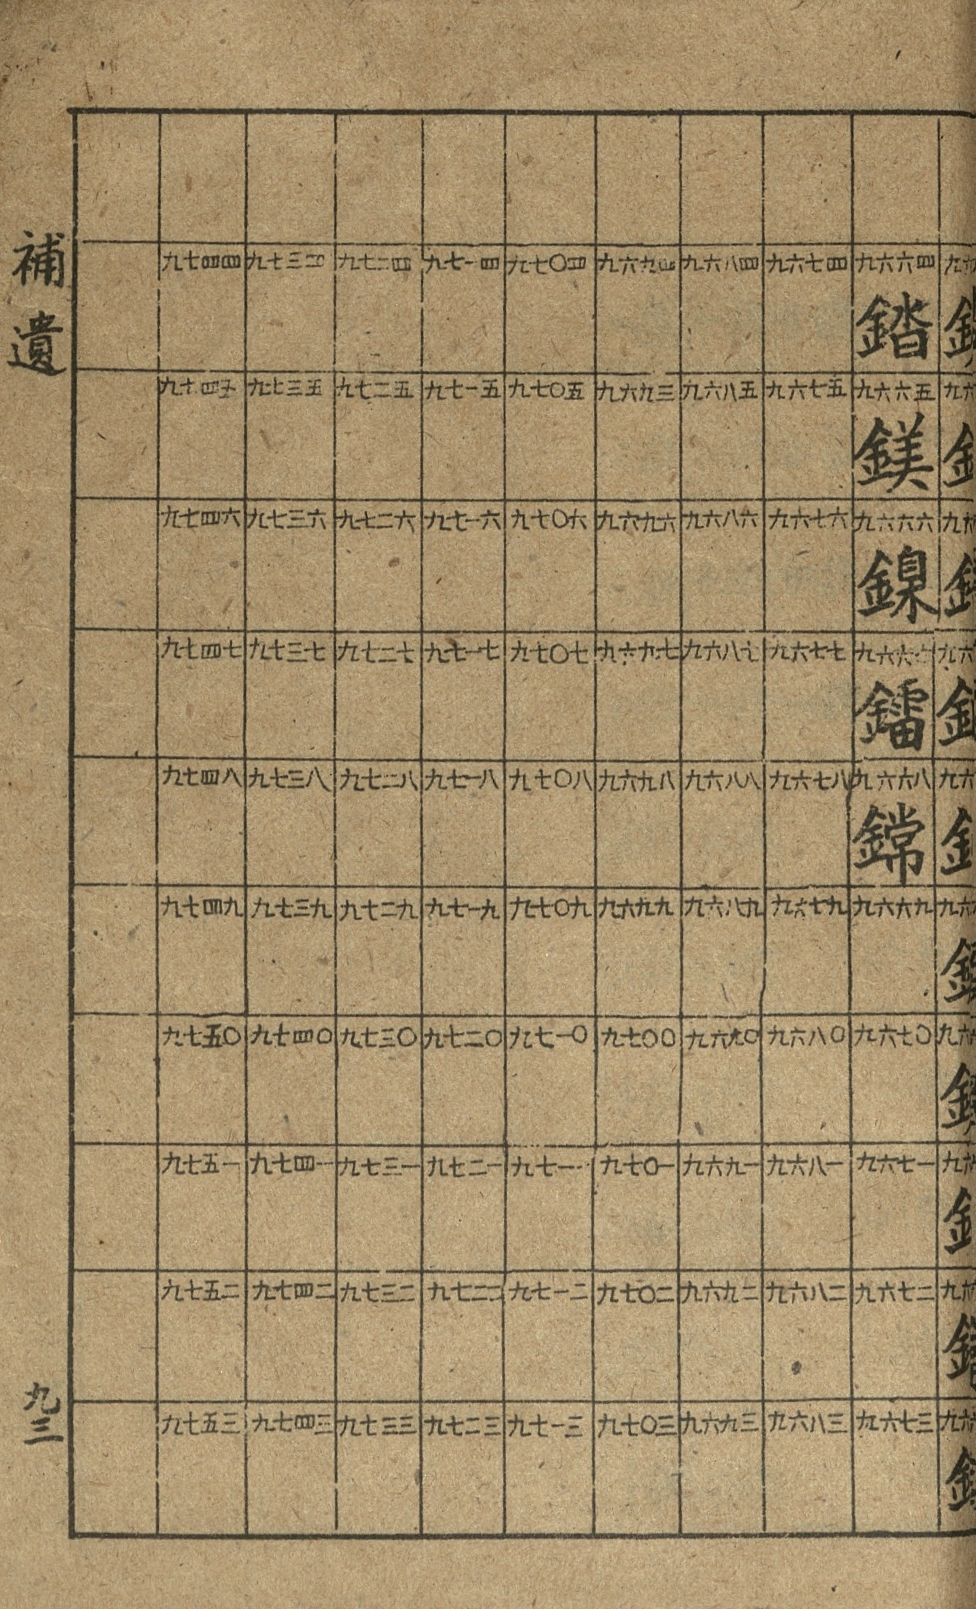 補遺
九六六四
錔
九六六五
鎂
九六六六
鎳
九六六七
鐳
九六六八
鏛
九六六九
九六七〇
九六七一
九六七二
九六七三
九六七四
九六七五
九六七六
九六七七
九六七八
九六七九
九六八〇
九六八一
九六八二
九六八三
九六八四
九六八五
九六八六
九六八七
九六八八
九六八九
九六九〇
九六九一
九六九二
九六九三
九六九四
九六九三
九六九六
九六九七
九六九八
九六九九
九七〇〇
九七〇一
九七〇二
九七〇三
九七〇四
九七〇五
九七〇六
九七〇七
九七〇八
九七〇九
九七一〇
九七一一
九七一二
九七一三
九七一四
九七一五
九七一六
九七一七
九七一八
九七一九
九七二〇
九七二一
九七二二
九七二三
九七二四
九七二五
九七二六
九七二七
九七二八
九七二九
九七三〇
九七三一
九七三二
九七三三
九七三四
九七三五
九七三六
九七三七
九七三八
九七三九
九七四〇
九七四一
九七四二
九七四三
九七四四
九七四五
九七四六
九七四七
九七四八
九七四九
九七五〇
九七五一
九七五二
九七五三
九三